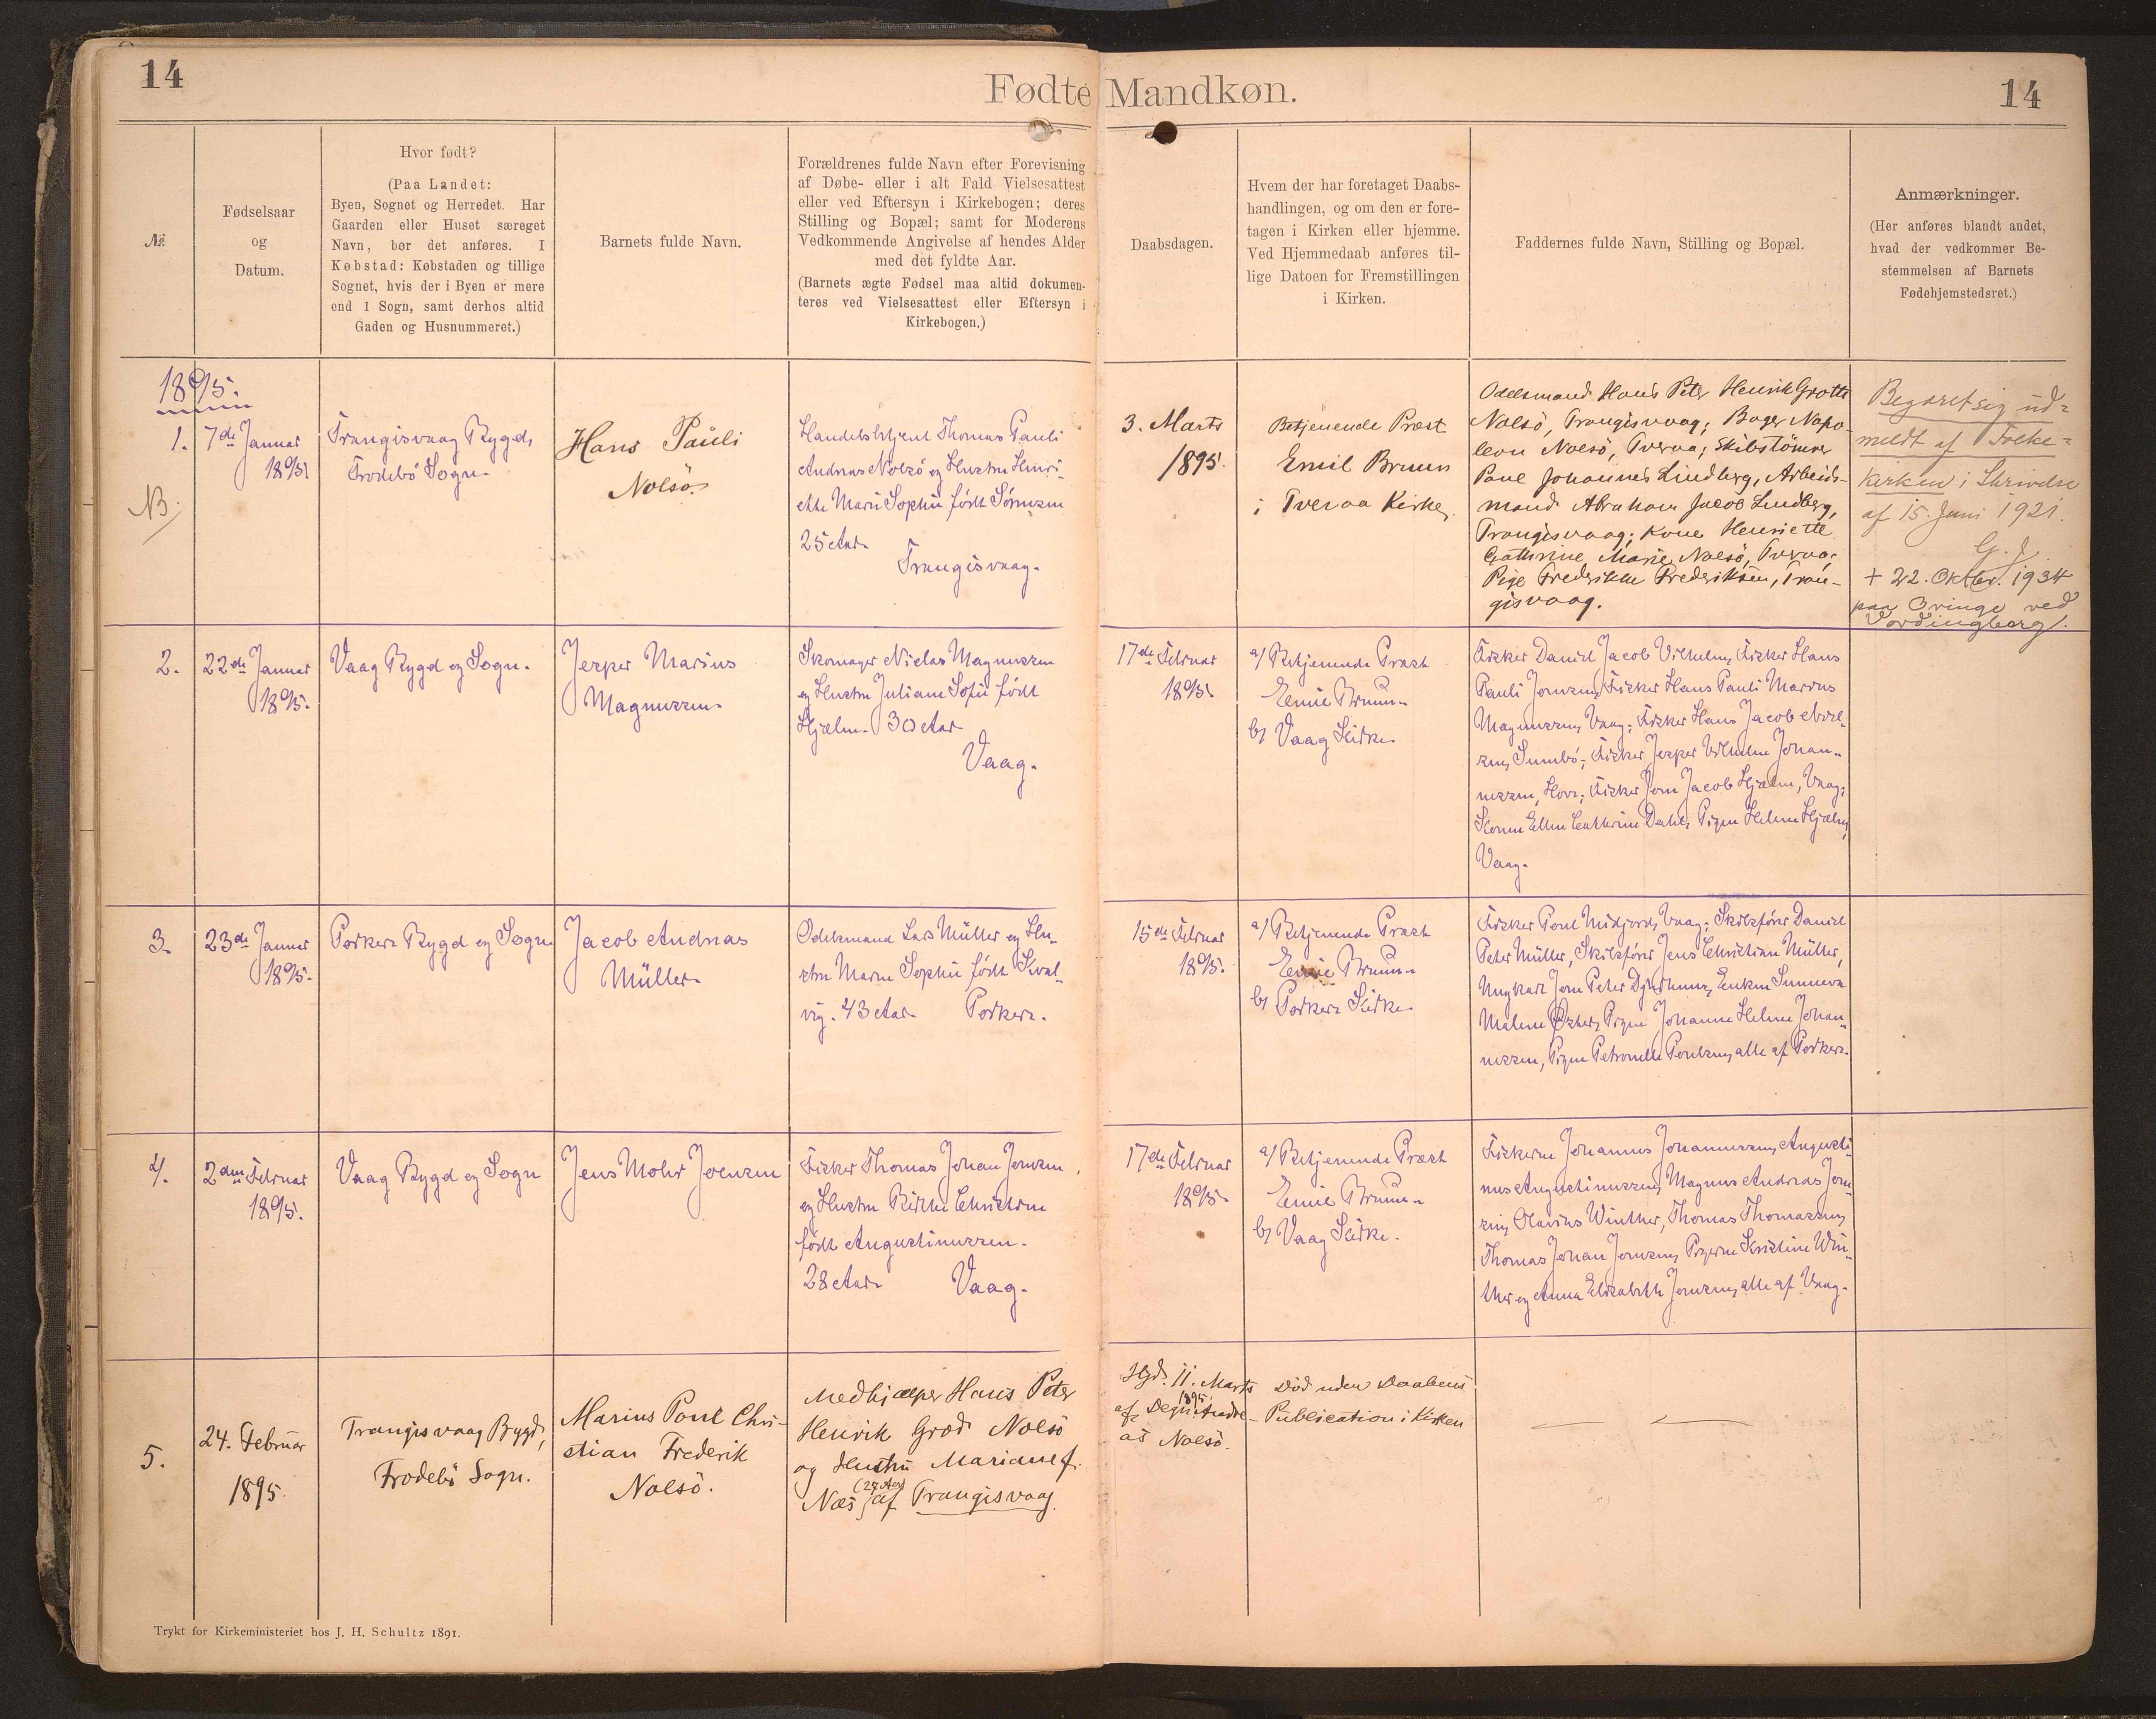 14
Fødte Mandkøn.
14
№
Fødselsaar
og
Datum.
Hvor født?
(Paa Landet:
Byen, Sognet og Herredet. Har
Gaarden eller Huset særeget
Navn, bør det anføres. I
Købstad: Købstaden og tillige
Sognet, hvis der i Byen er mere
end 1 Sogn, samt derhos altid
Gaden og Husnummeret.)
Barnets fulde Navn.
Forældrenes fulde Navn efter Forevisning
af Døbe- eller i alt Fald Vielsesattest
eller ved Eftersyn i Kirkebogen; deres
Stilling og Bopæl; samt for Moderens
Vedkommende Angivelse af hendes Alder
med det fyldte Aar.
(Barnets ægte Fødsel maa altid dokumen-
teres ved Vielsesattest eller Eftersyn i
Kirkebogen.)
Daabsdagen.
Hvem der har foretaget Daabs-
handlingen, og om den er fore-
tagen i Kirken eller hjemme.
Ved Hjemmedaab anføres til-
lige Datoen for Fremstillingen
i Kirken.
Faddernes fulde Navn, Stilling og Bopæl.
Anmærkninger.
(Her anføres blandt andet,
hvad der vedkommer Be-
stemmelsen af Barnets
Fødehjemstedsret.)
1895.
1.
NB.
7de Januar
1895.
Trangisvaag Bygd,
Frodebö Sogn.
Hans Pauli
Nolsö.
Handelsbetjent Thomas Pauli
Andreas Nolsö og Hustru Henri-
ette Marie Sophie født Sörensen
25 Aar.
Trangisvaag.
3. Marts
1895.
Betjenende Præst
Emil Bruun
i Tveraa Kirke
Odelsmand Hans Peter Henrik Grotte
Nolsö, Trangisvaag; Bager Napo-
leon Nolsö, Tveraa; Skibstömrer
Poul Johannes Lindberg, Arbeids-
mand Abraham Jacob Lindberg,
Trangisvaag; Kone Henriette
Cathrine Marie Nolsö, Tveraa;
Pige Frederikke Frederiksen, Tran-
gisvaag.
Begæret sig ud-
meldt af Folke-
kirken i Skrivelse
af 15. Juni 1921.
G. J.
+ 22. Oktbr. 1934
paa Oringe ved
Vordingborg.
2.
22de Januar
1895.
Vaag Bygd og Sogn.
Jesper Marius
Magnussen.
Skomager Niclas Magnussen
og Hustru Juliane Sofie født
Hjælm. 30 Aar.
Vaag.
17de Februar
1895.
a) Betjenende Præst
Emil Bruun.
b) Vaag Kirke.
Fisker Daniel Jacob Vilhelm, Fisker Hans
Pauli Joensen, Fisker Hans Pauli Marius
Magnussen, Vaag; Fisker Hans Jacob
Sumbö; Fisker Jesper Vilhelm Johan-
nessen, Hove; Fisker Joen Jacob Hjælm, Vaag;
Konen Ellen Cathrine Dahl, Pigen Helene Hjælm,
Vaag.
3.
23de Januar
1895.
Porkere Bygd og Sogn
Jacob Andreas
Müller.
Odelsmand Lars Müller og Hu-
stru Maren Sophie født Kval-
vig. 43 Aar. Porkere.
15de Februar
1895.
a) Betjenende Præst
Emil Bruun.
b) Porkere Kirke.
Fisker Poul Midjord, Vaag; Skibsfører Daniel
Peter Müller, Skibsfører Jens Christian Müller,
Ungkarl Joen Peter Djurhuus, Enken Sunneva
Malene Øster, Pigen Johanne Helene Johan-
nessen, Pigen Petronelle Poulsen, alle af Porkere.
4.
2den Februar
1895.
Vaag Bygd og Sogn
Jens Mohr Joensen
Fisker Thomas Johan Joensen
og Hustru Birthe Christine
født Augustinussen.
28 Aar. Vaag.
17de Februar
1895.
a) Betjenende Præst
Emil Bruun.
b) Vaag Kirke.
Fiskerne Johannes Johannessen, Augusti-
nus Augustinussen, Magnus Andreas Joen-
sen, Olavius Winther, Thomas Thomassen,
Thomas Johan Joensen, Pigerne Kristine Win-
ther og Anna Elisabeth Joensen, alle af Vaag.
5.
24. Februar
1895.
Trangisvaag Bygd,
Frodebö Sogn.
Marius Poul Chri-
stian Frederik
Nolsö.
Medhjælper Hans Peter
Henrik Nolsö
og Hustru Mariane f.
Næs af Trangisvaag.
Hjd. 11. Marts
1895
af Degn Andre-
as Nolsö.
Död uden Daabens
Publication i Kirken
Trykt for Kirkeministeriet hos J. H. Schultz 1891.